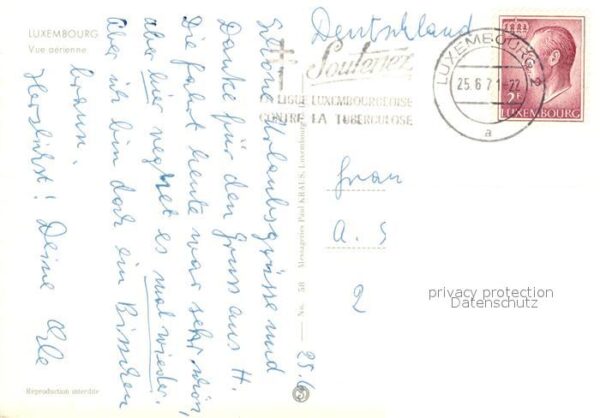 LUXEMBOURG
Vue aérienne
Deutschland
Soutenez
LIGUE LUXEMBOURGEOISE
CONTRE LA TUBERCULOSE
LUXEMBOURG 2
25.6.71-22
a
2F
LUXEMBOURG
25.6
Schöne Urlaubsgrüsse und
Danke für den Gruss aus H.
Die Fahrt heute war sehr schön,
aber hier regnet es mal wieder.
Aber ich bin doch ein Bisschen
braun.
Herzlichst! Deine
Frau
A. S
2
No. 58 Messageries Paul KRAUS, Luxembourg
privacy protection
Datenschutz
Reproduction interdite